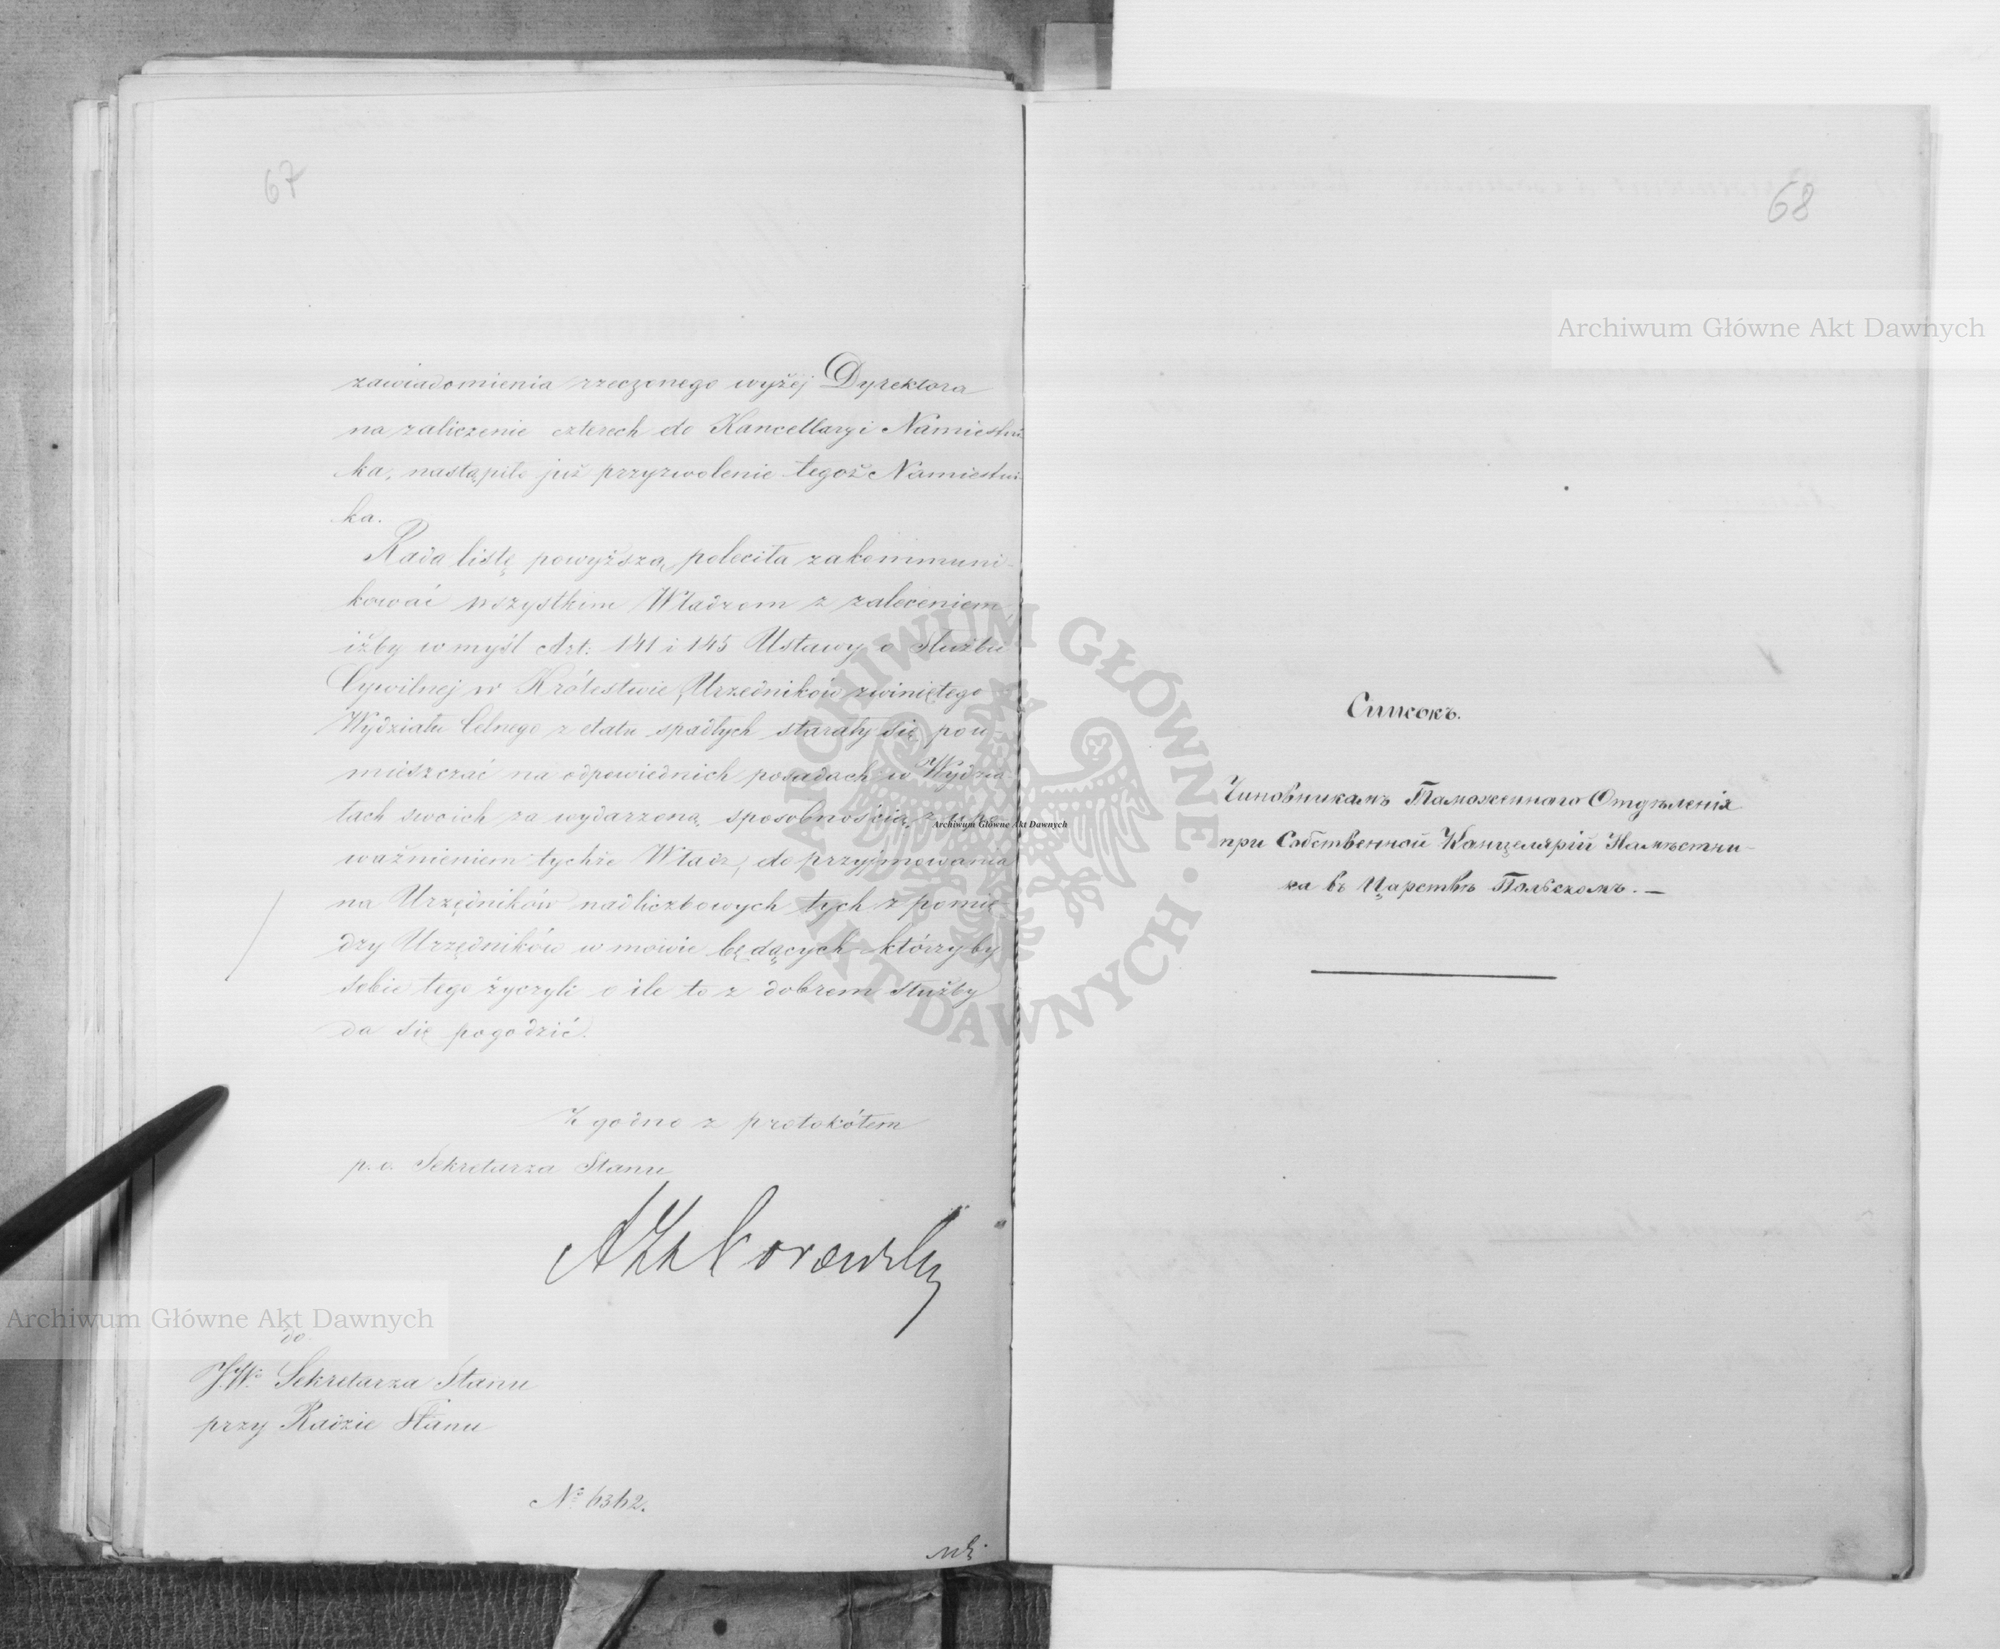 67
zawiadomienia rzeczonego wyżej Dyrektora
na zaliczenie czterech do Kancellaryi Namiestni-
ka, nastąpiło już przyzwolenie tegoż Namiestni-
ka.
Rada listę powyższą poleciła zakommuni-
kować wszystkim Władzom z zaleceniem,
iżby w myśl Art: 141 i 145 Ustawy o Służbie
Cywilnej w Królestwie, Urzędników zwiniętego
Wydziału Celnego z etatu spadłych starały się pow-
mieszczać na odpowiednich posadach w Wydzia-
łach swoich za wydarzoną sposobnością, z upo-
ważnieniem tychże Władz, do przyjmowania
na Urzędników nadliczbowych tych z pomię-
dzy Urzędników w mowie będących którzyby
sobie tego życzyli o ile to z dobrem służby
da się pogodzić.
Zgodno z protokółem
p.o. Sekretarza Stanu
do
J.W. Sekretarza Stanu
przy Radzie Stanu
№ 6362.
68
Списокъ.
Чиновникамъ Таможеннаго Отдѣленія
при Собственной Канцелярій Намѣстни-
ка въ Царствѣ Польскомъ. —
Archiwum Główne Akt Dawnych
Archiwum Główne Akt Dawnych
Archiwum Główne Akt Dawnych
· ARCHIWUM GŁÓWNE · AKT DAWNYCH